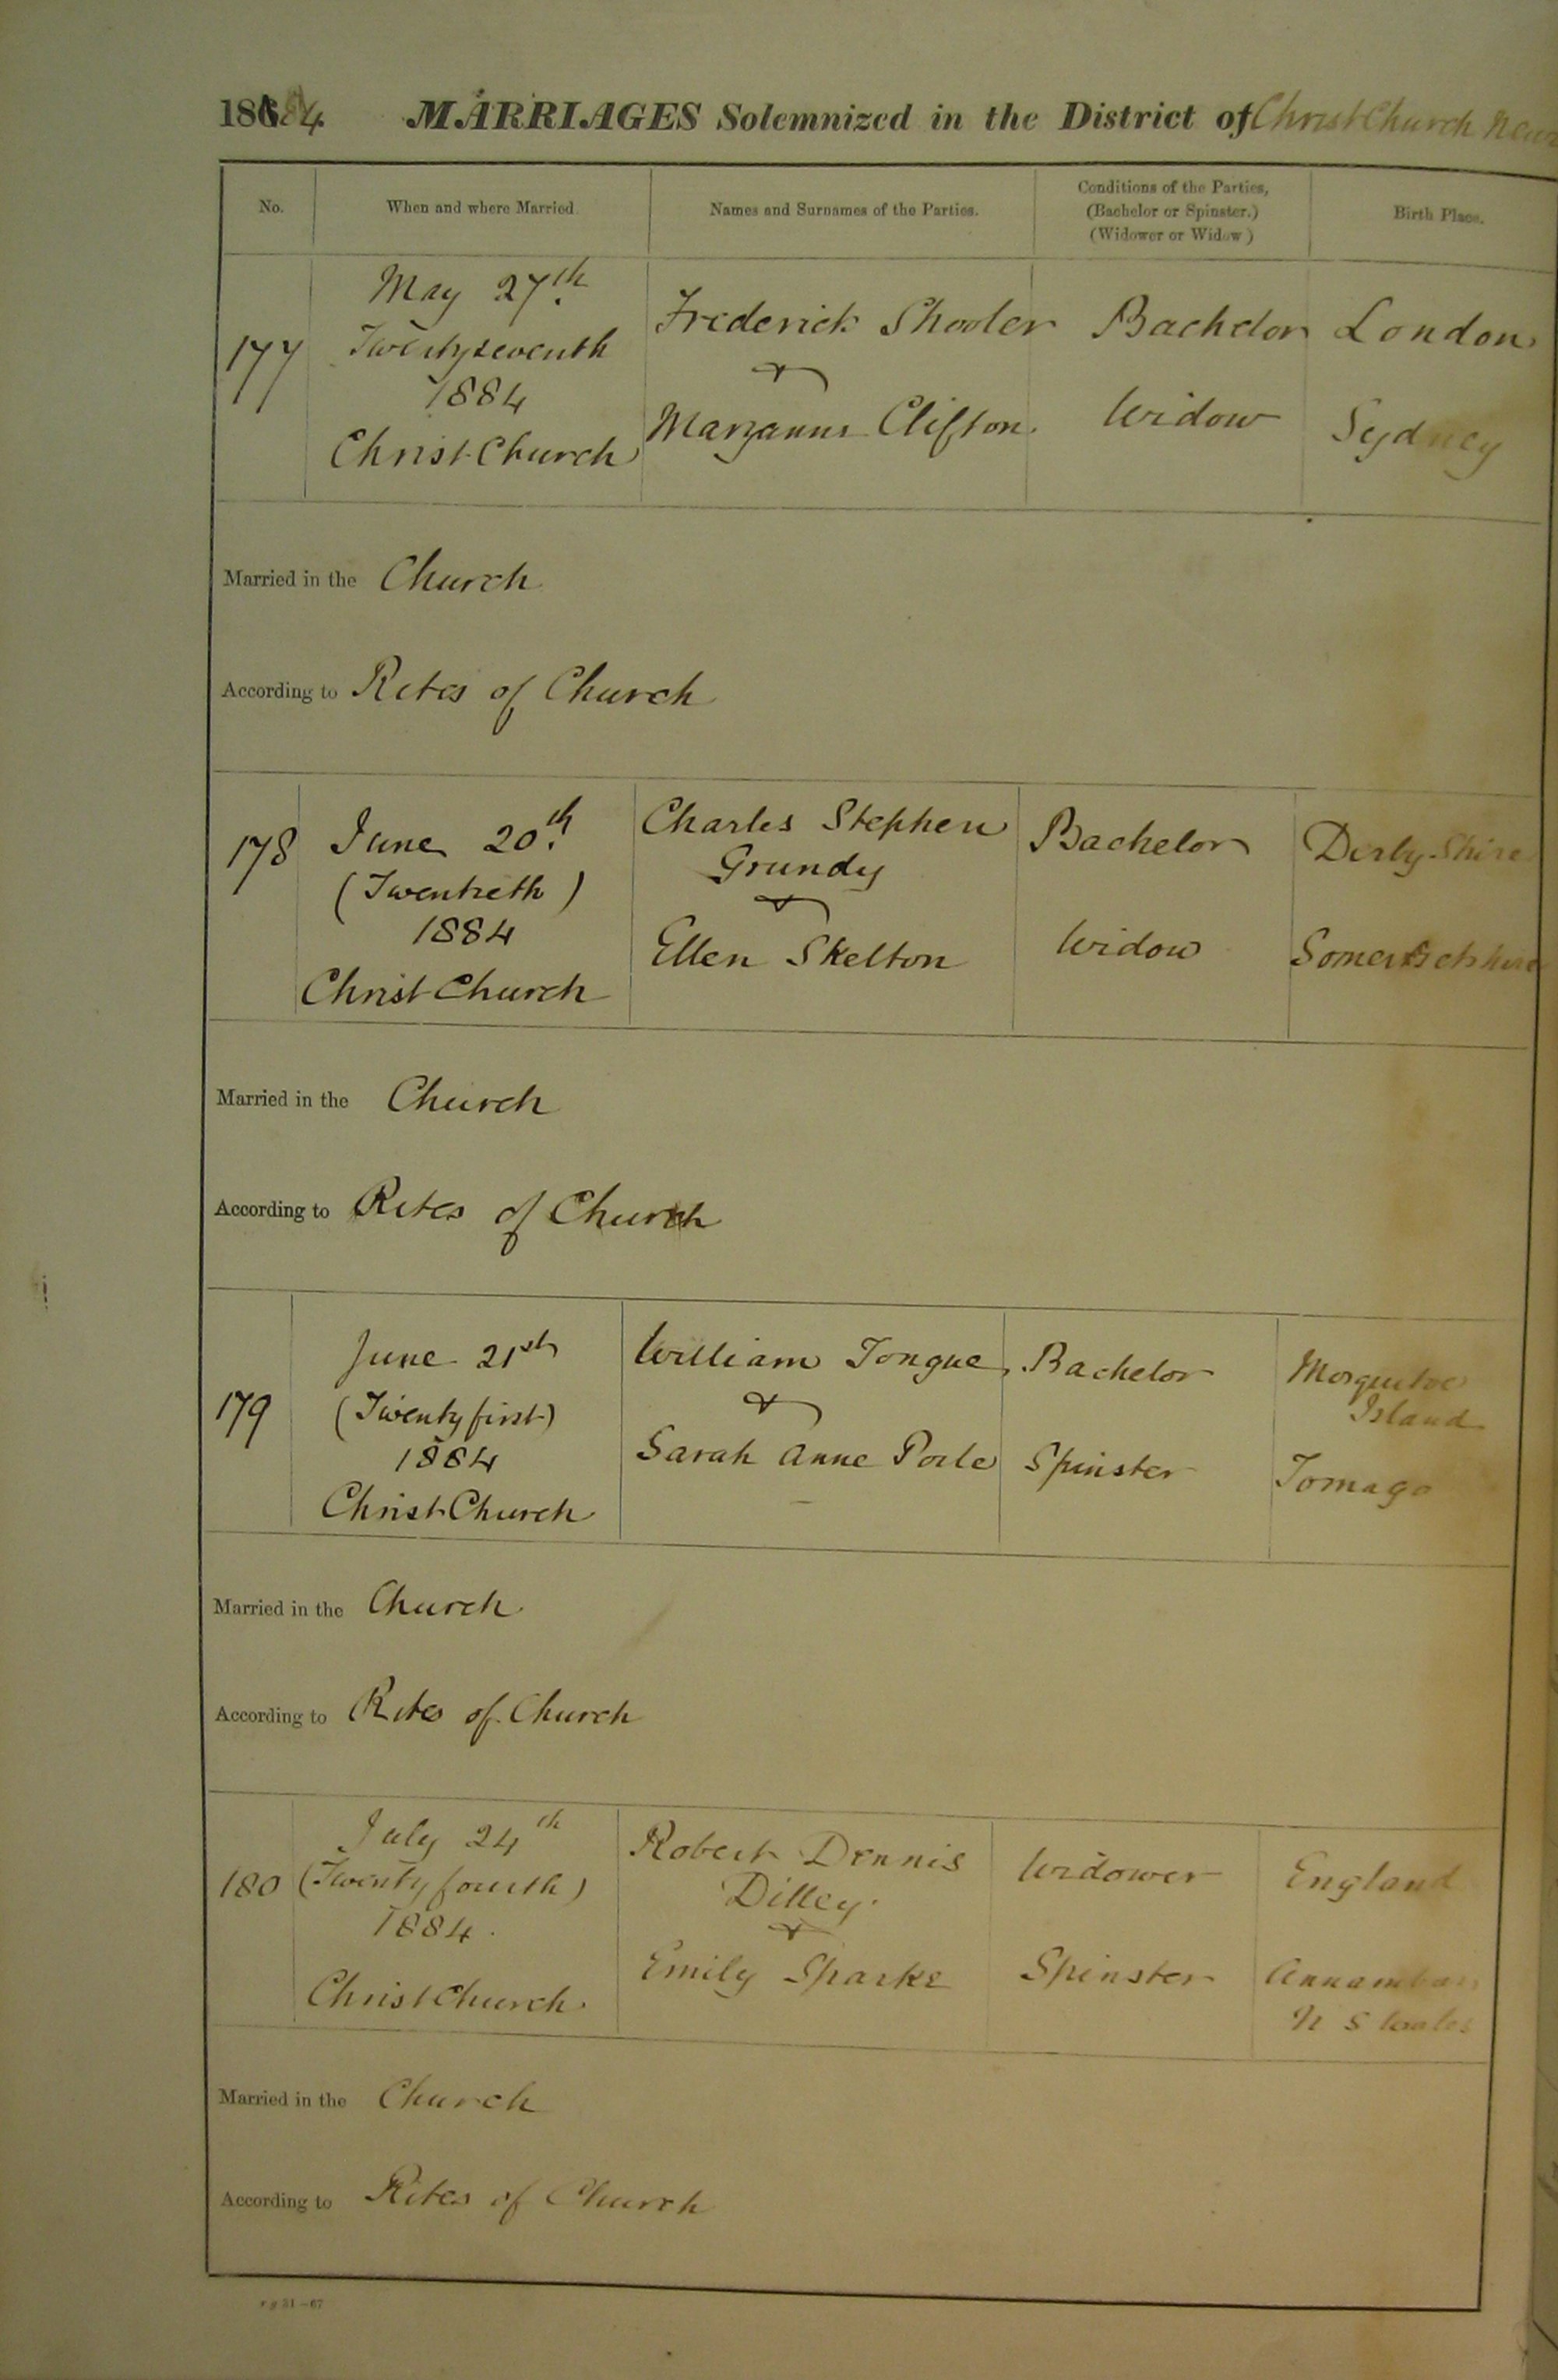 1884. MARRIAGES Solemnized in the District of Christ Church
No.
When and where Married
Names and Surnames of the Parties.
Conditions of the Parties,
(Bachelor or Spinster.)
(Widower or Widow)
Birth Place.
177
May 27th
Twentyseventh
1884
Christ Church
Frederick Shooler
&
Maryanne Clifton.
Bachelor
Widow
London
Sydney
Married in the Church
According to Rites of Church
178
June 20th
(Twentieth)
1884
Christ Church
Charles Stephen
Grundy
&
Ellen Skelton
Bachelor
Widow
Derby Shire
Somersetshire
Married in the Church
According to Rites of Church
179
June 21st
(Twenty first)
1884
Christ Church
William Tongue
&
Sarah Anne Poile
Bachelor
Spinster
Mosquitoe
Island
Tomago
Married in the Church
According to Rites of Church
180
July 24th
(Twenty fourth)
1884.
Christ Church.
Robert Dennis
Dilley.
&
Emily Sparke
Widower
Spinster
England
N S Wales
Married in the Church
According to Rites of Church